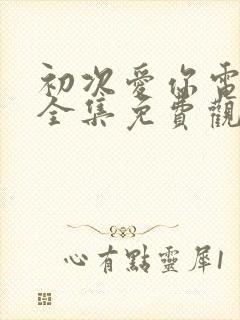 初次愛你電
全集免費觀
心有點靈犀1